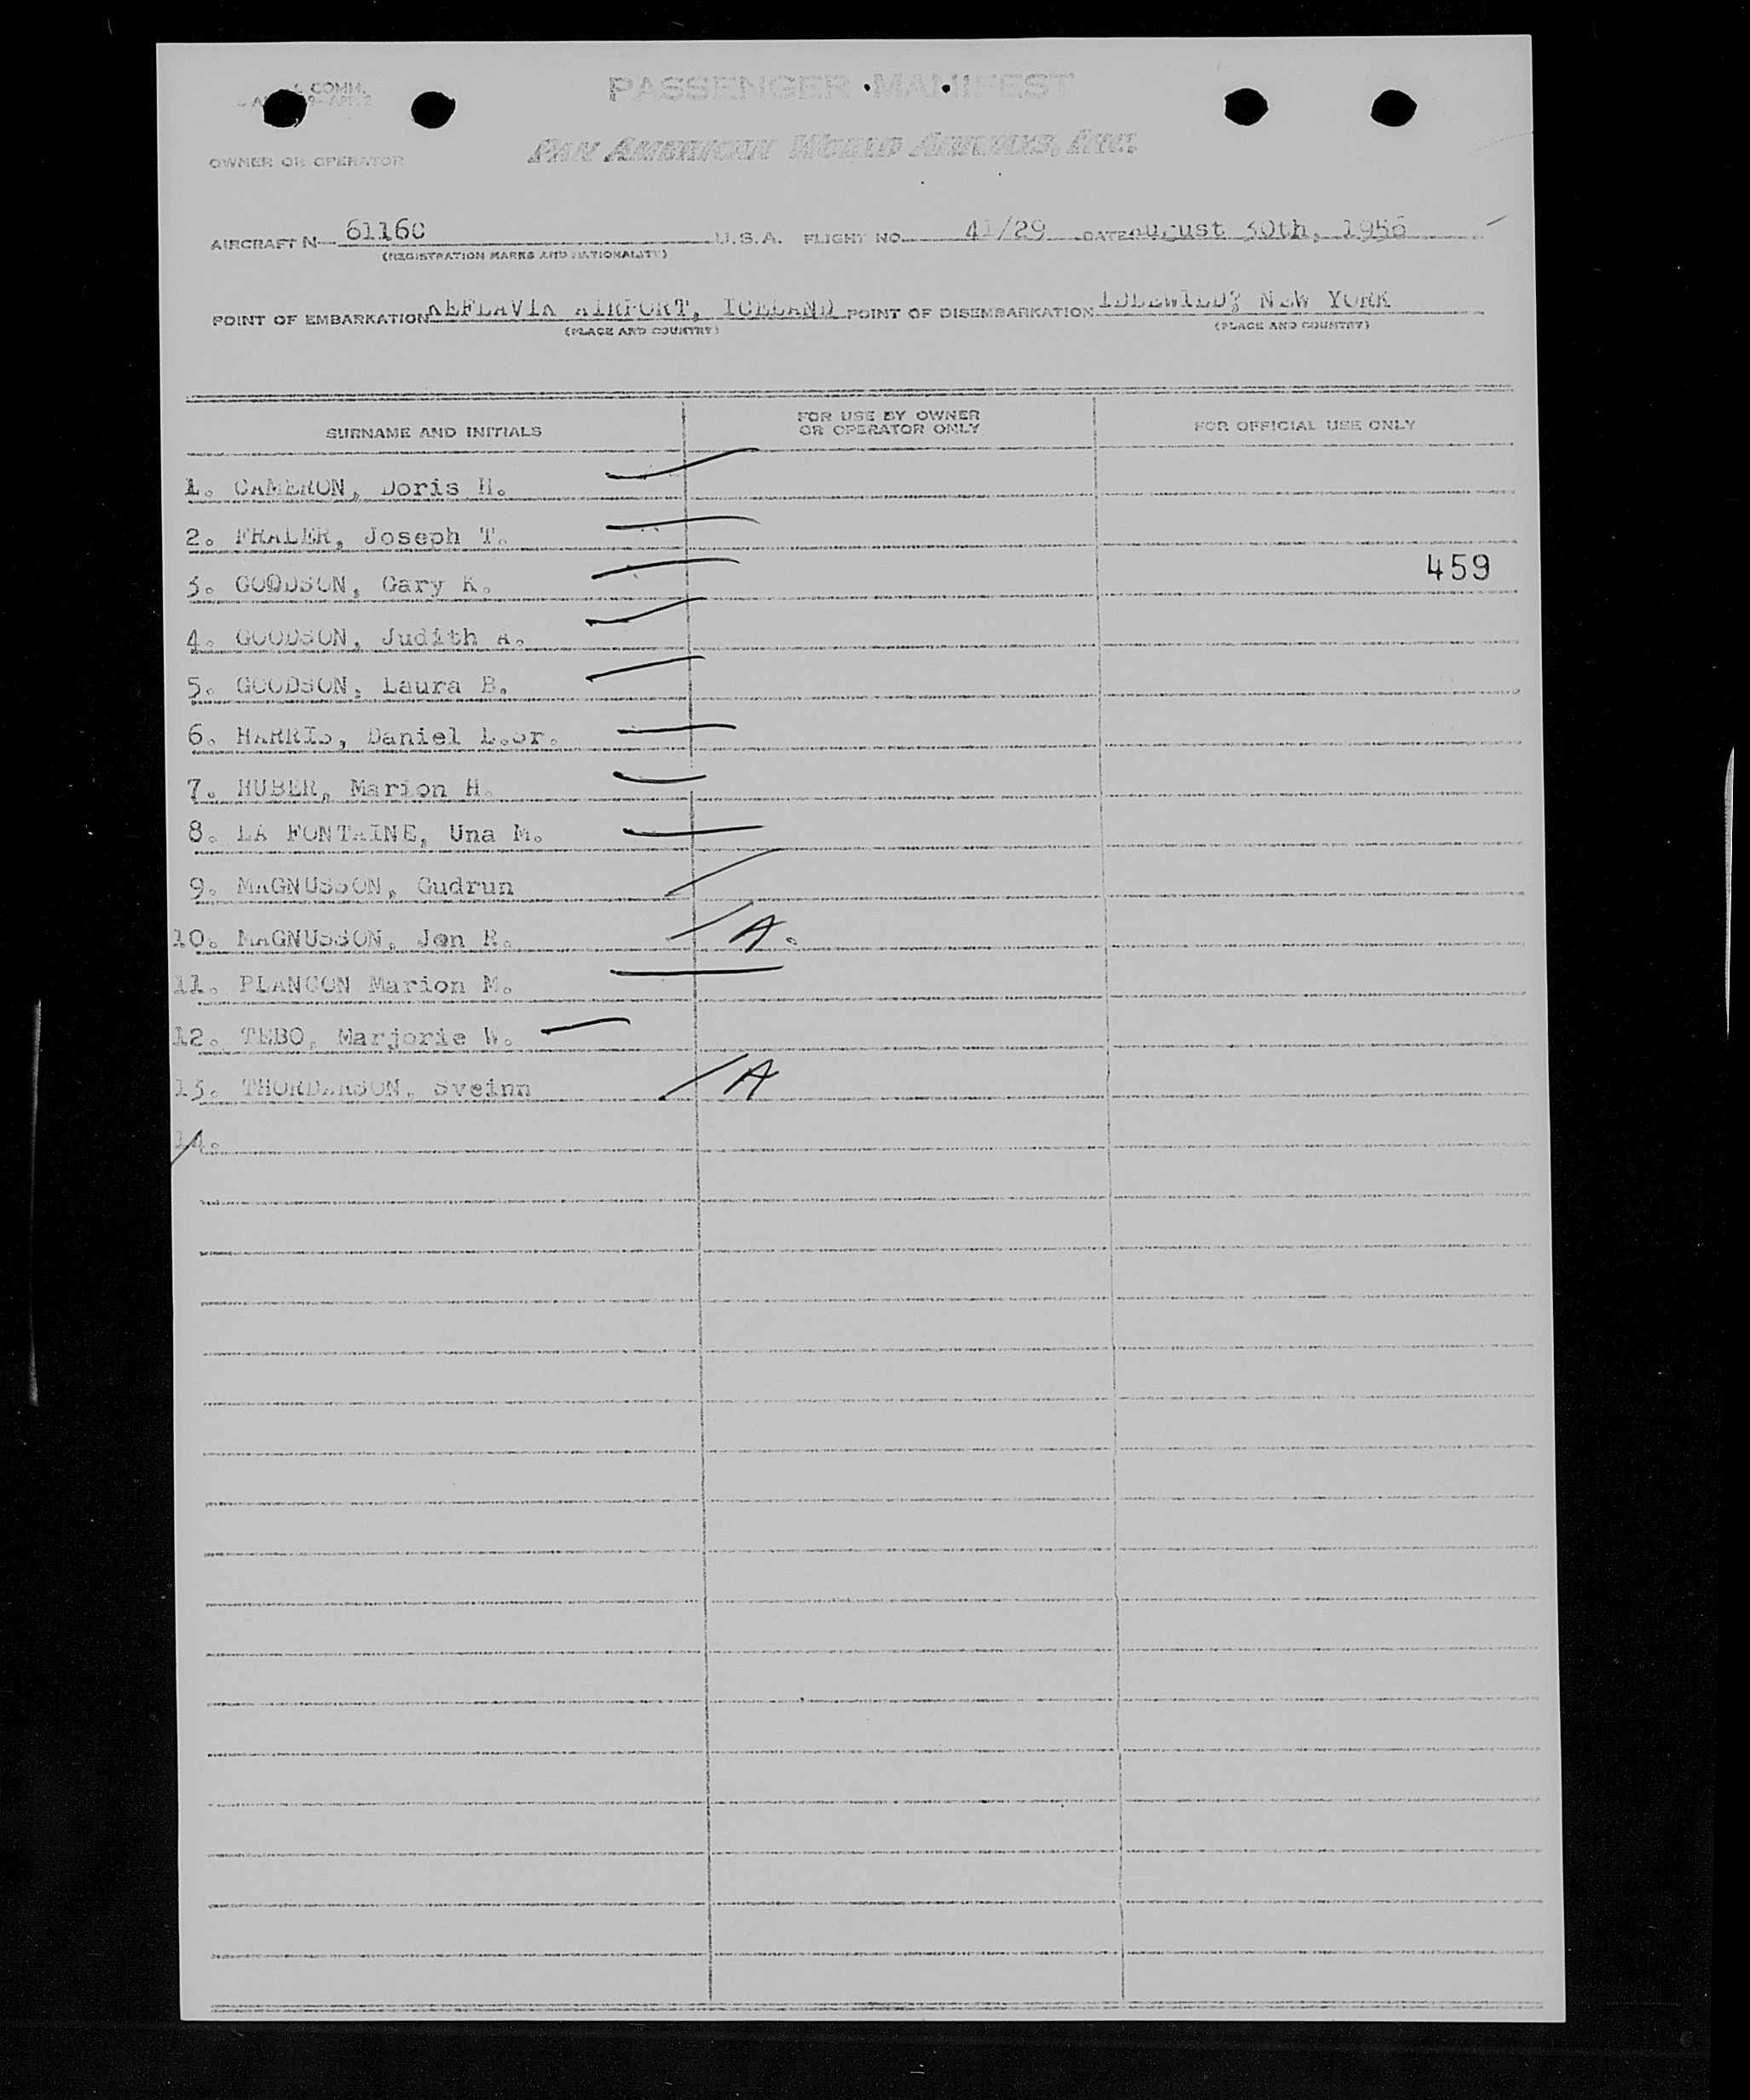 COMM.
PASSENGER MANIFEST
OWNER OR OPERATOR PAN AMERICAN WORLD AIRWAYS, INC.
AIRCRAFT N- 6116C U.S.A. FLIGHT NO. 41/29 DATE August 30th, 1956
(REGISTRATION MARKS AND NATIONALITY)
POINT OF EMBARKATION KEFLAVIK AIRPORT, ICELAND POINT OF DISEMBARKATION IDLEWILD? NEW YORK
(PLACE AND COUNTRY) (PLACE AND COUNTRY)
SURNAME AND INITIALS FOR USE BY OWNER OR OPERATOR ONLY FOR OFFICIAL USE ONLY
1. CAMERON, Doris H.
2. FRALER, Joseph T.
459
3. GOODSON, Gary K.
4. GOODSON, Judith A.
5. GOODSON, Laura B.
6. HARRIS, Daniel L.Sr.
7. HUBER, Marion H.
8. LA FONTAINE, Una M.
9. MAGNUSSON, Gudrun
10. MAGNUSSON, Jon R. A.
11. PLANCON Marion M.
12. TEBO, Marjorie W.
13. THORDARSON, Sveinn A
14.